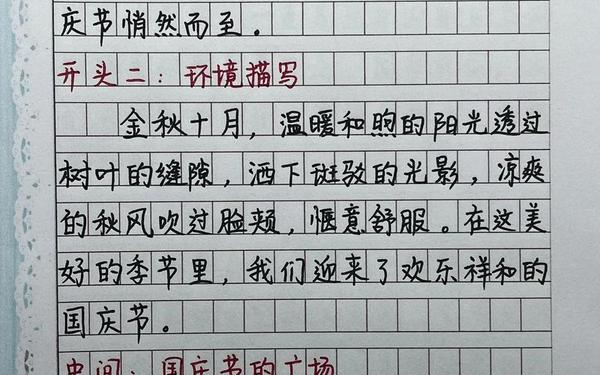 庆节悄然而至。
开头二：环境描写
金秋十月，温暖和煦的阳光透过
树叶的缝隙，洒下斑驳的光影，凉爽
的秋风吹过脸颊，惬意舒服。在这美
好的季节里，我们迎来了欢乐祥和的
国庆节。
中间：国庆节的广场